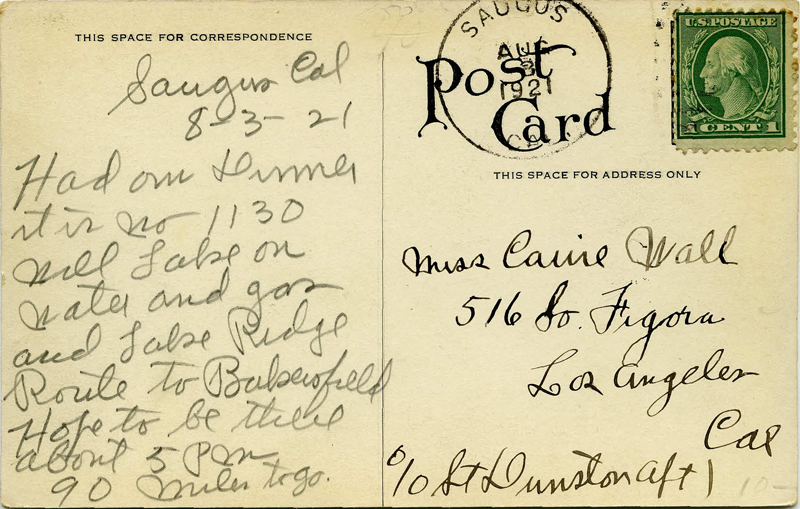 THIS SPACE FOR CORRESPONDENCE
Saugus Cal
8-3-21
Had our Dinner
it is no 1130
will take on
water and gas
and take Ridge
Route to Bakersfield
Hope to be there
about 5 PM
90 miles to go.
SAUGUS
AUG
3
1921
CAL
Post
Card
U.S. POSTAGE
1 CENT 1
THIS SPACE FOR ADDRESS ONLY
Miss Carrie Wall
516 So. Figora
Los Angeles
Cal
c/o St Dunston aft 1
10-